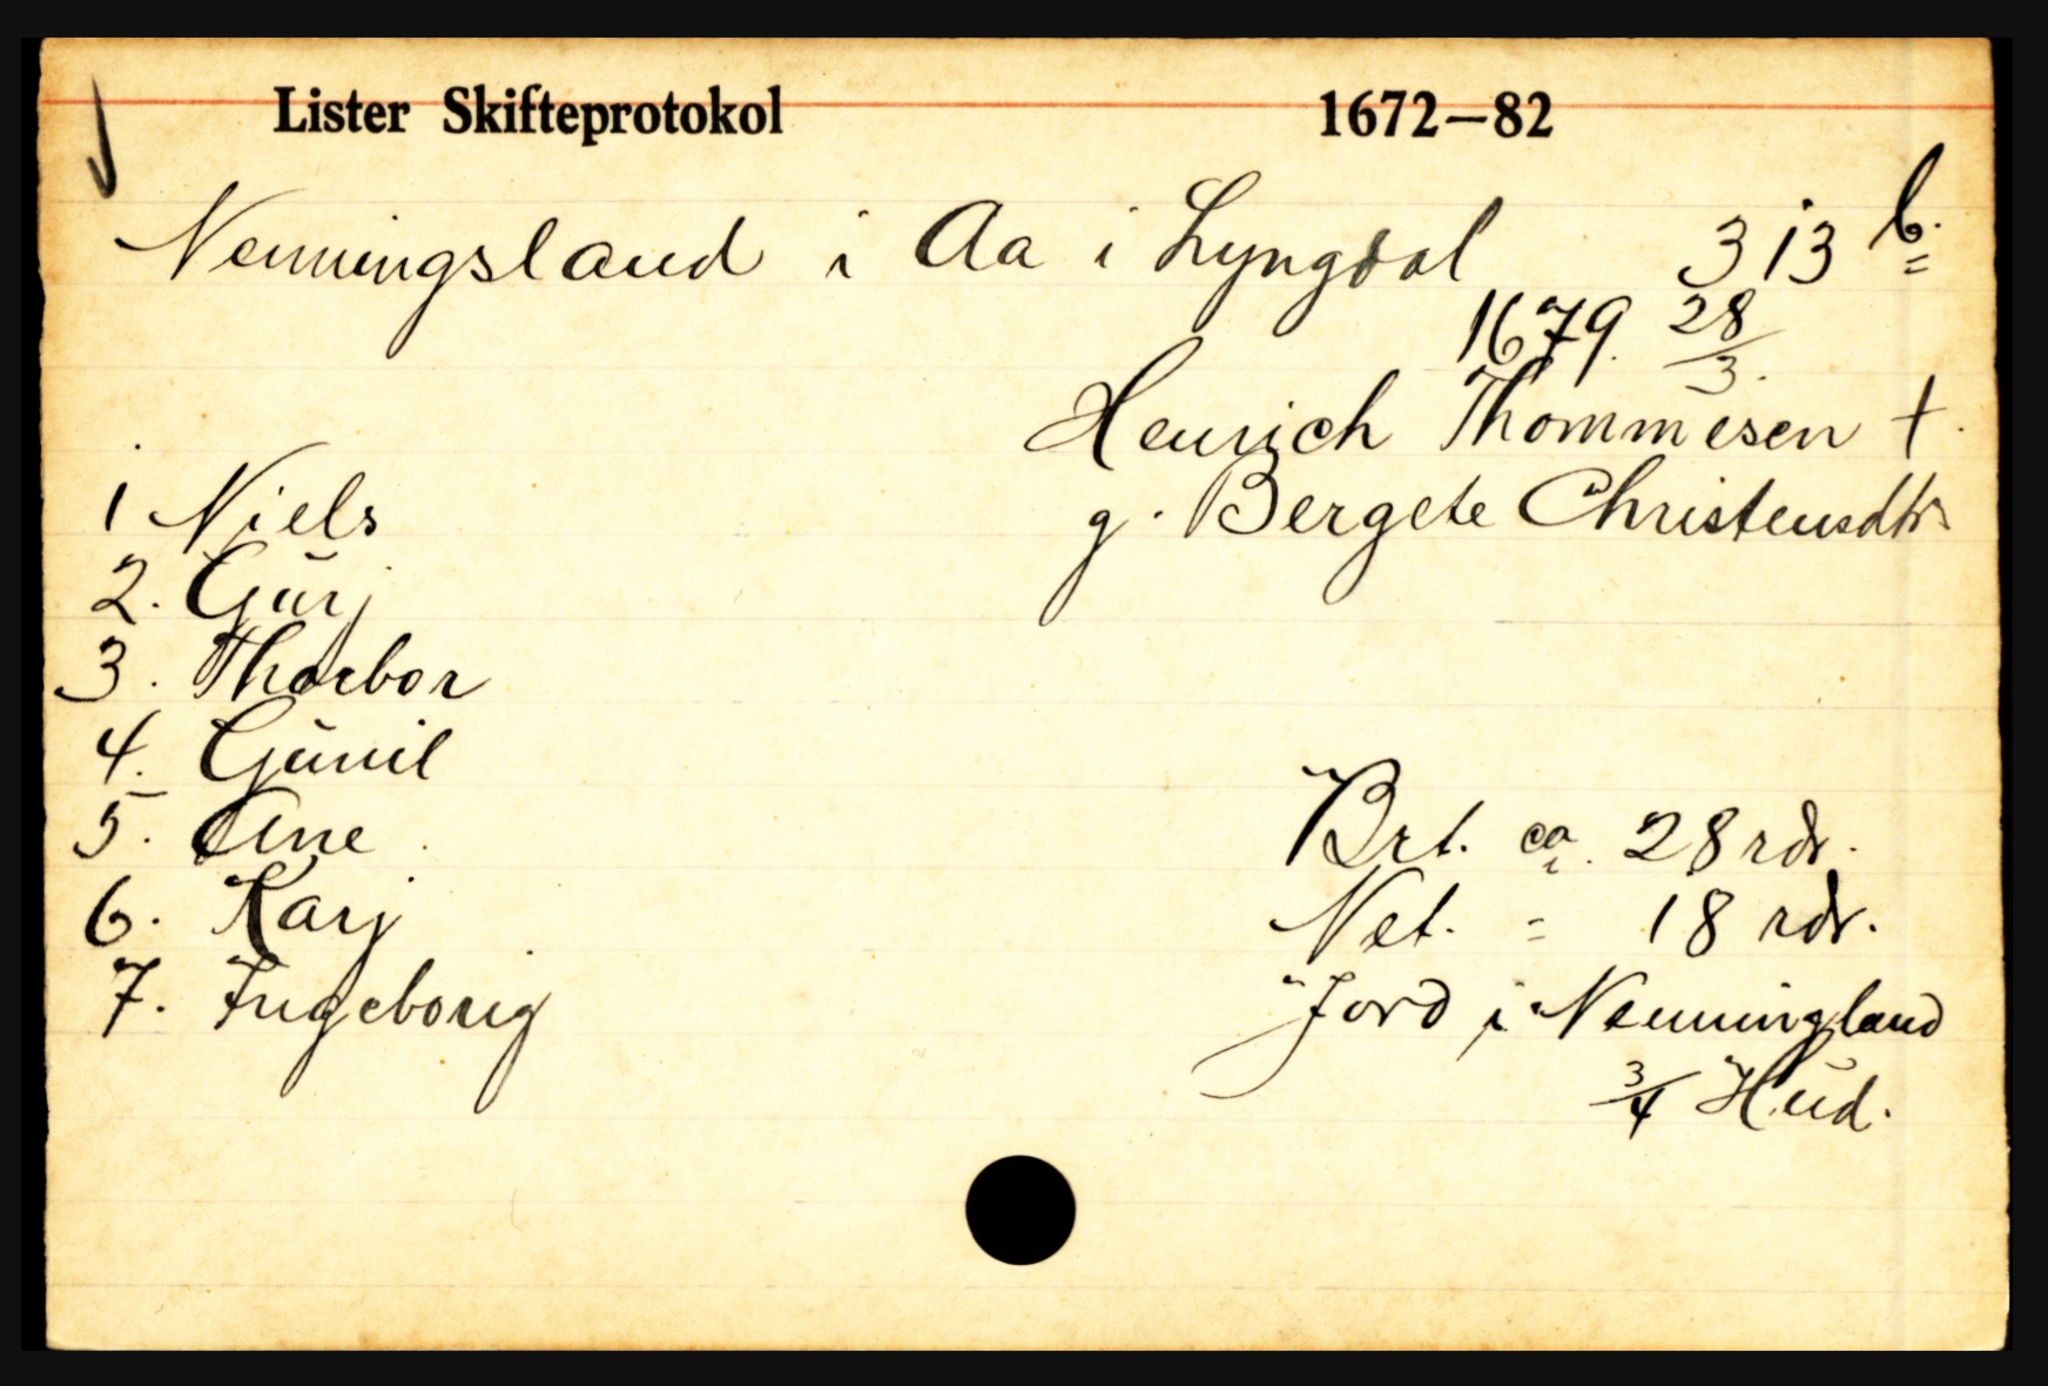 Lister Skifteprotokol 1672—82
Nenningsland i Aa i Lyngdal 313 b.
1679. 28/3.
Henrich Thommesen †.
g. Bergete Christensdtr
1 Niels
2. Gurj
3. Thorbor
4. Gunil
5. Ane
6. Karj
7. Ingeborig
Brt. ca. 28 rdr.
Net. = 18 rdr.
Jord i Nenningland
3/4 Hud.